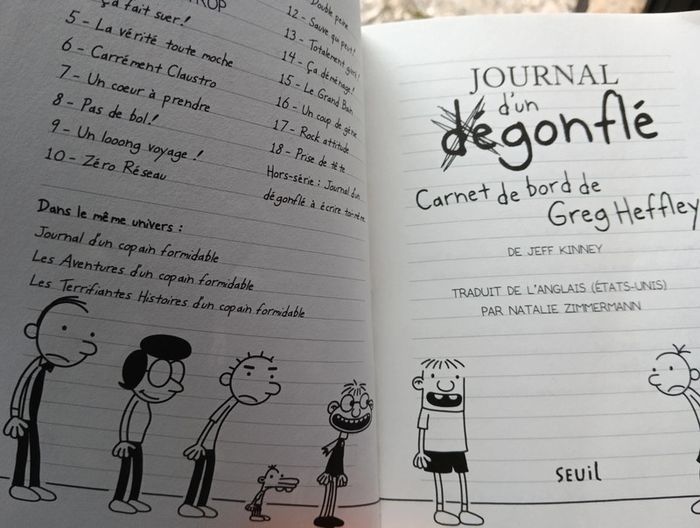 ça fait suer!
5 - La vérité toute moche
6 - Carrément Claustro
7 - Un coeur à prendre
8 - Pas de bol!
9 - Un looong voyage!
10 - Zéro Réseau
12 - Double peine
13 - Totalement
14 - Ça déménage!
15 - Le Grand Bain
16 - Un coup de génie
17 - Rock attitude
18 - Prise de tête
Hors-série : Journal d'un
dégonflé à écrire toi-même
Dans le même univers :
Journal d'un copain formidable
Les Aventures d'un copain formidable
Les Terrifiantes Histoires d'un copain formidable
JOURNAL
d'un
dégonflé
Carnet de bord de
Greg Heffley
DE JEFF KINNEY
TRADUIT DE L'ANGLAIS (ÉTATS-UNIS)
PAR NATALIE ZIMMERMANN
SEUIL